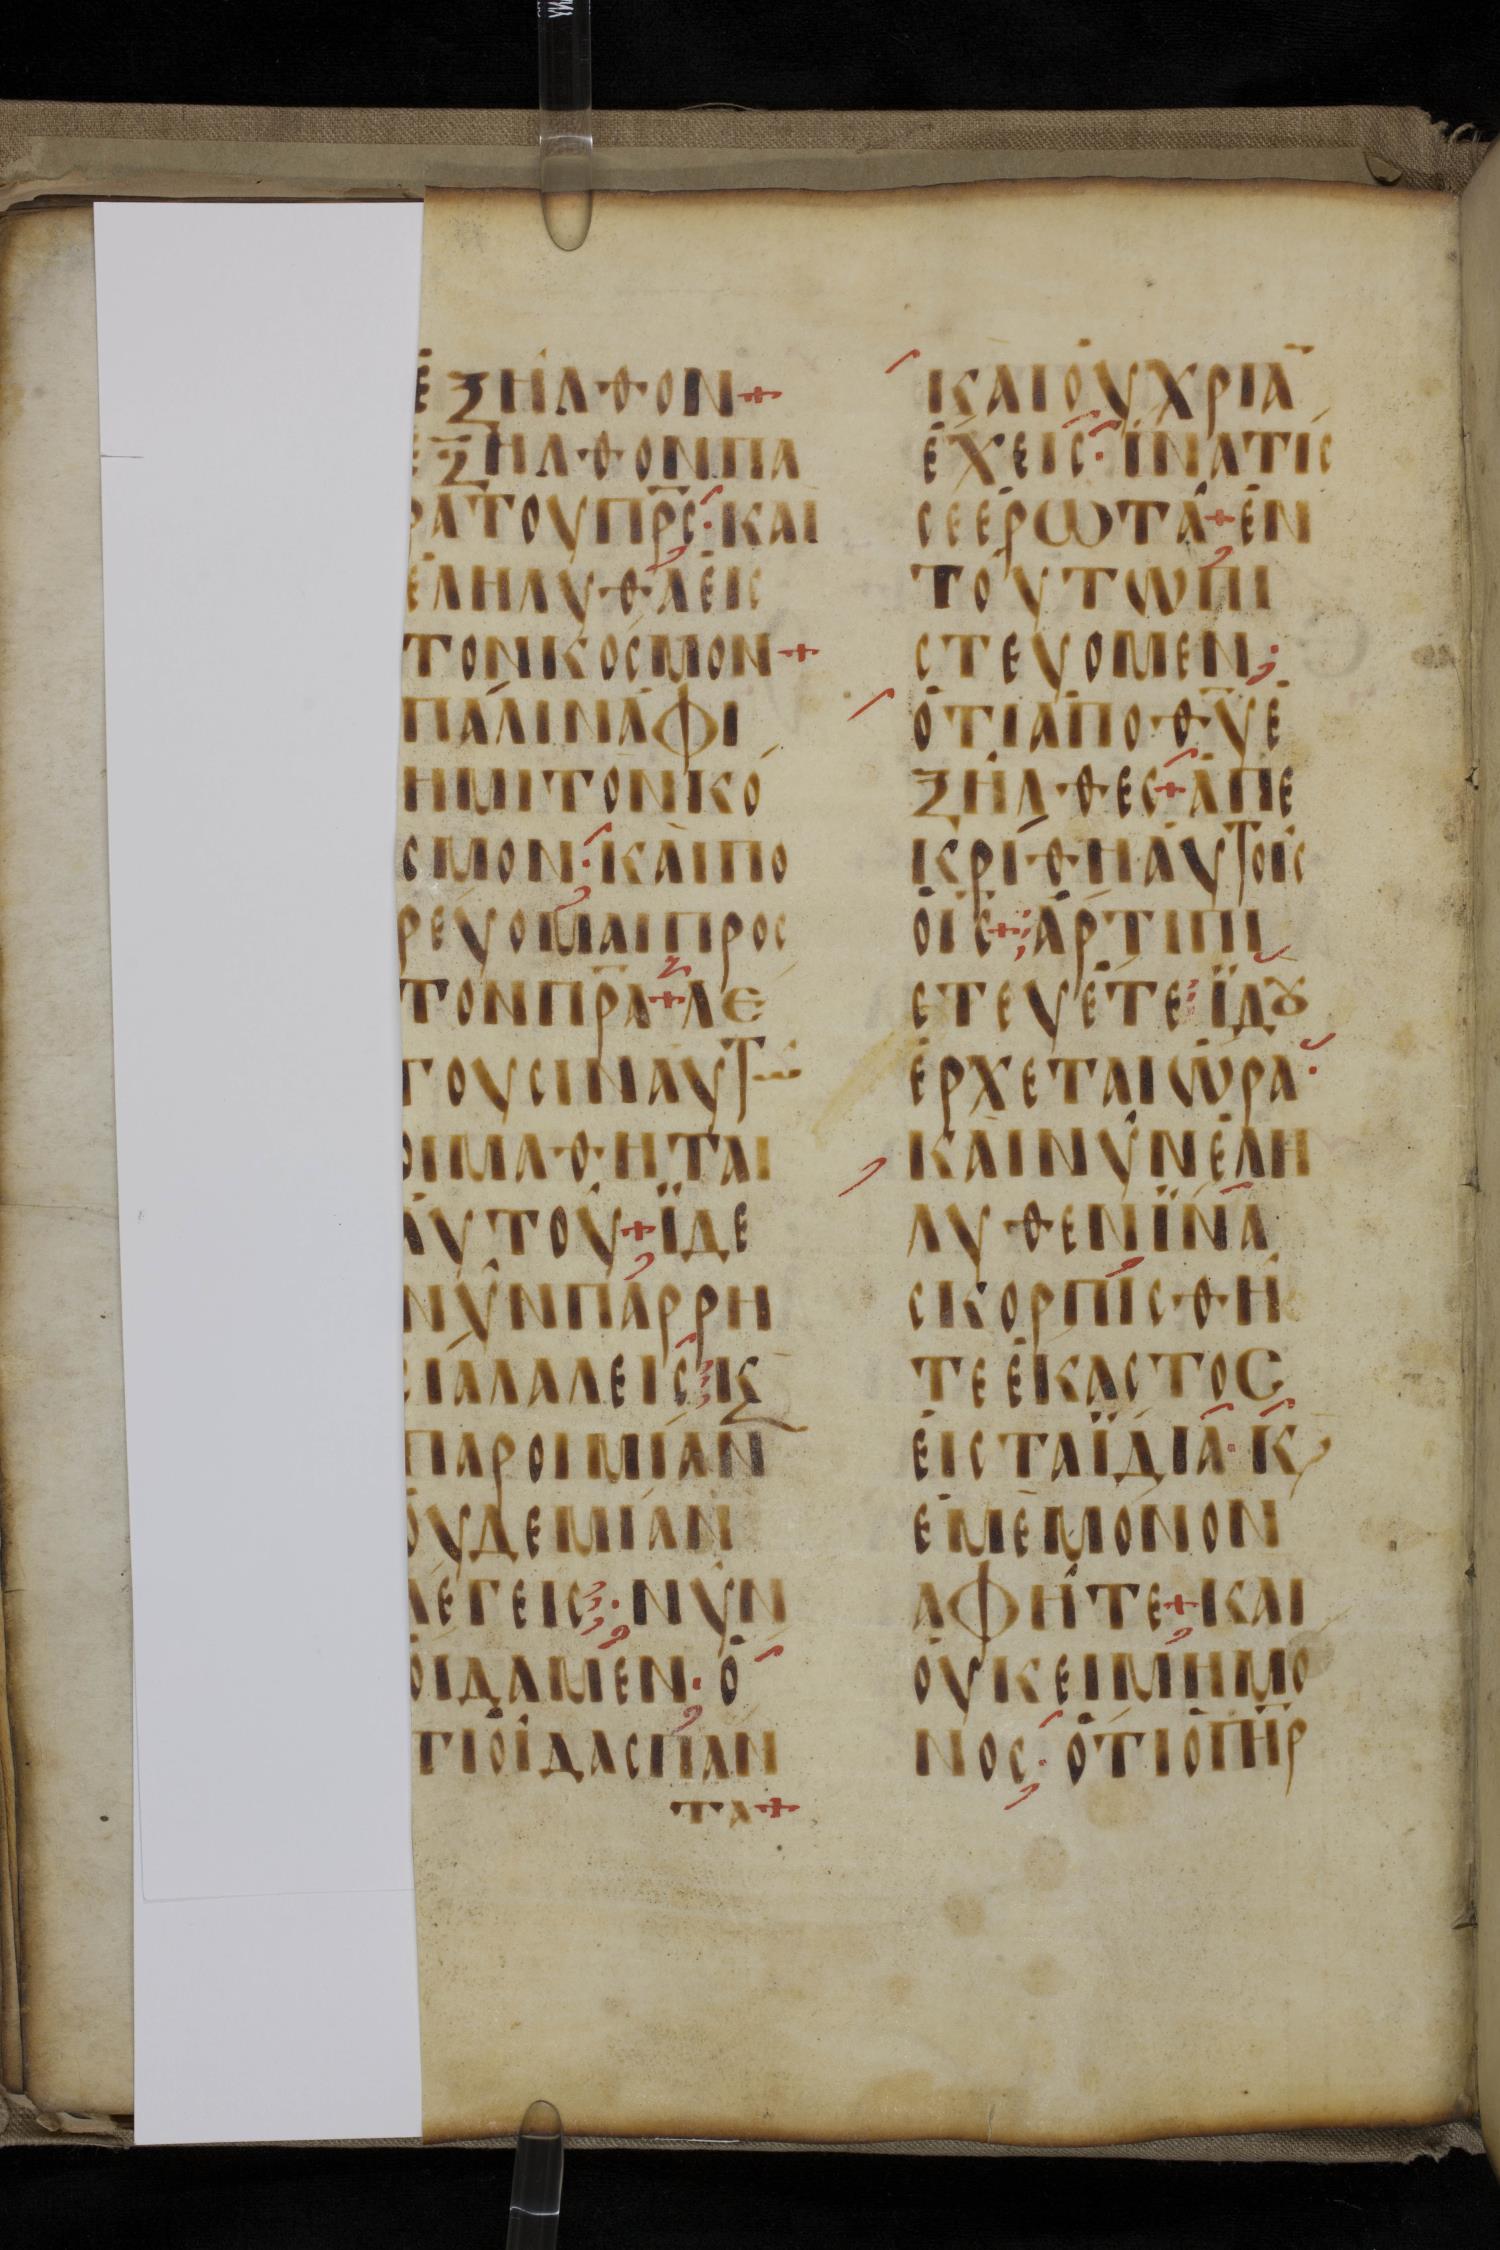 ἐξῆλθον+
ἐξῆλθονπα
ρατουπρ̅ς·και
ἐλήλυθαἐις
τὸνκόσμον+
πάλινἀφί
ημιτὸνκό
σμον·καὶπο
ρεύομαιπρος
τονπρ̅α+λέ
γουσιναὐτῶ
οιμαθηταὶ
ἀυτοῦ+ϊδε
νῦνπαρρη
σίαλαλεῖςκ̀
παροιμίαν
ὀυδεμίαν
λέγεις·νῦν
ὀίδαμεν·ὅ
τιὀῖδασπάν
τα+
καιὀυχρία
ἔχεις·ἵνατίς
σεἐρωτᾶ+ἐν
τούτωπι
στεύομεν;
ὅτιἀπὸθ̅υἐ
ξῆλθες+ἀπε
κρίθηἀυτοῖς
ὁι̅ς+ἄρτιπι
στεύετεϊδȣ
ἔρχεταιὥρα·
καὶνῦνἐλή
λυθενϊνα
σκορπισθῆ
τεἕκαστος
ἐιςταϊδια·κ
ἐμὲμόνον
ἀφῆτε+και
ὀυκειμὶμό
νος·ὅτιὁπη̅ρ